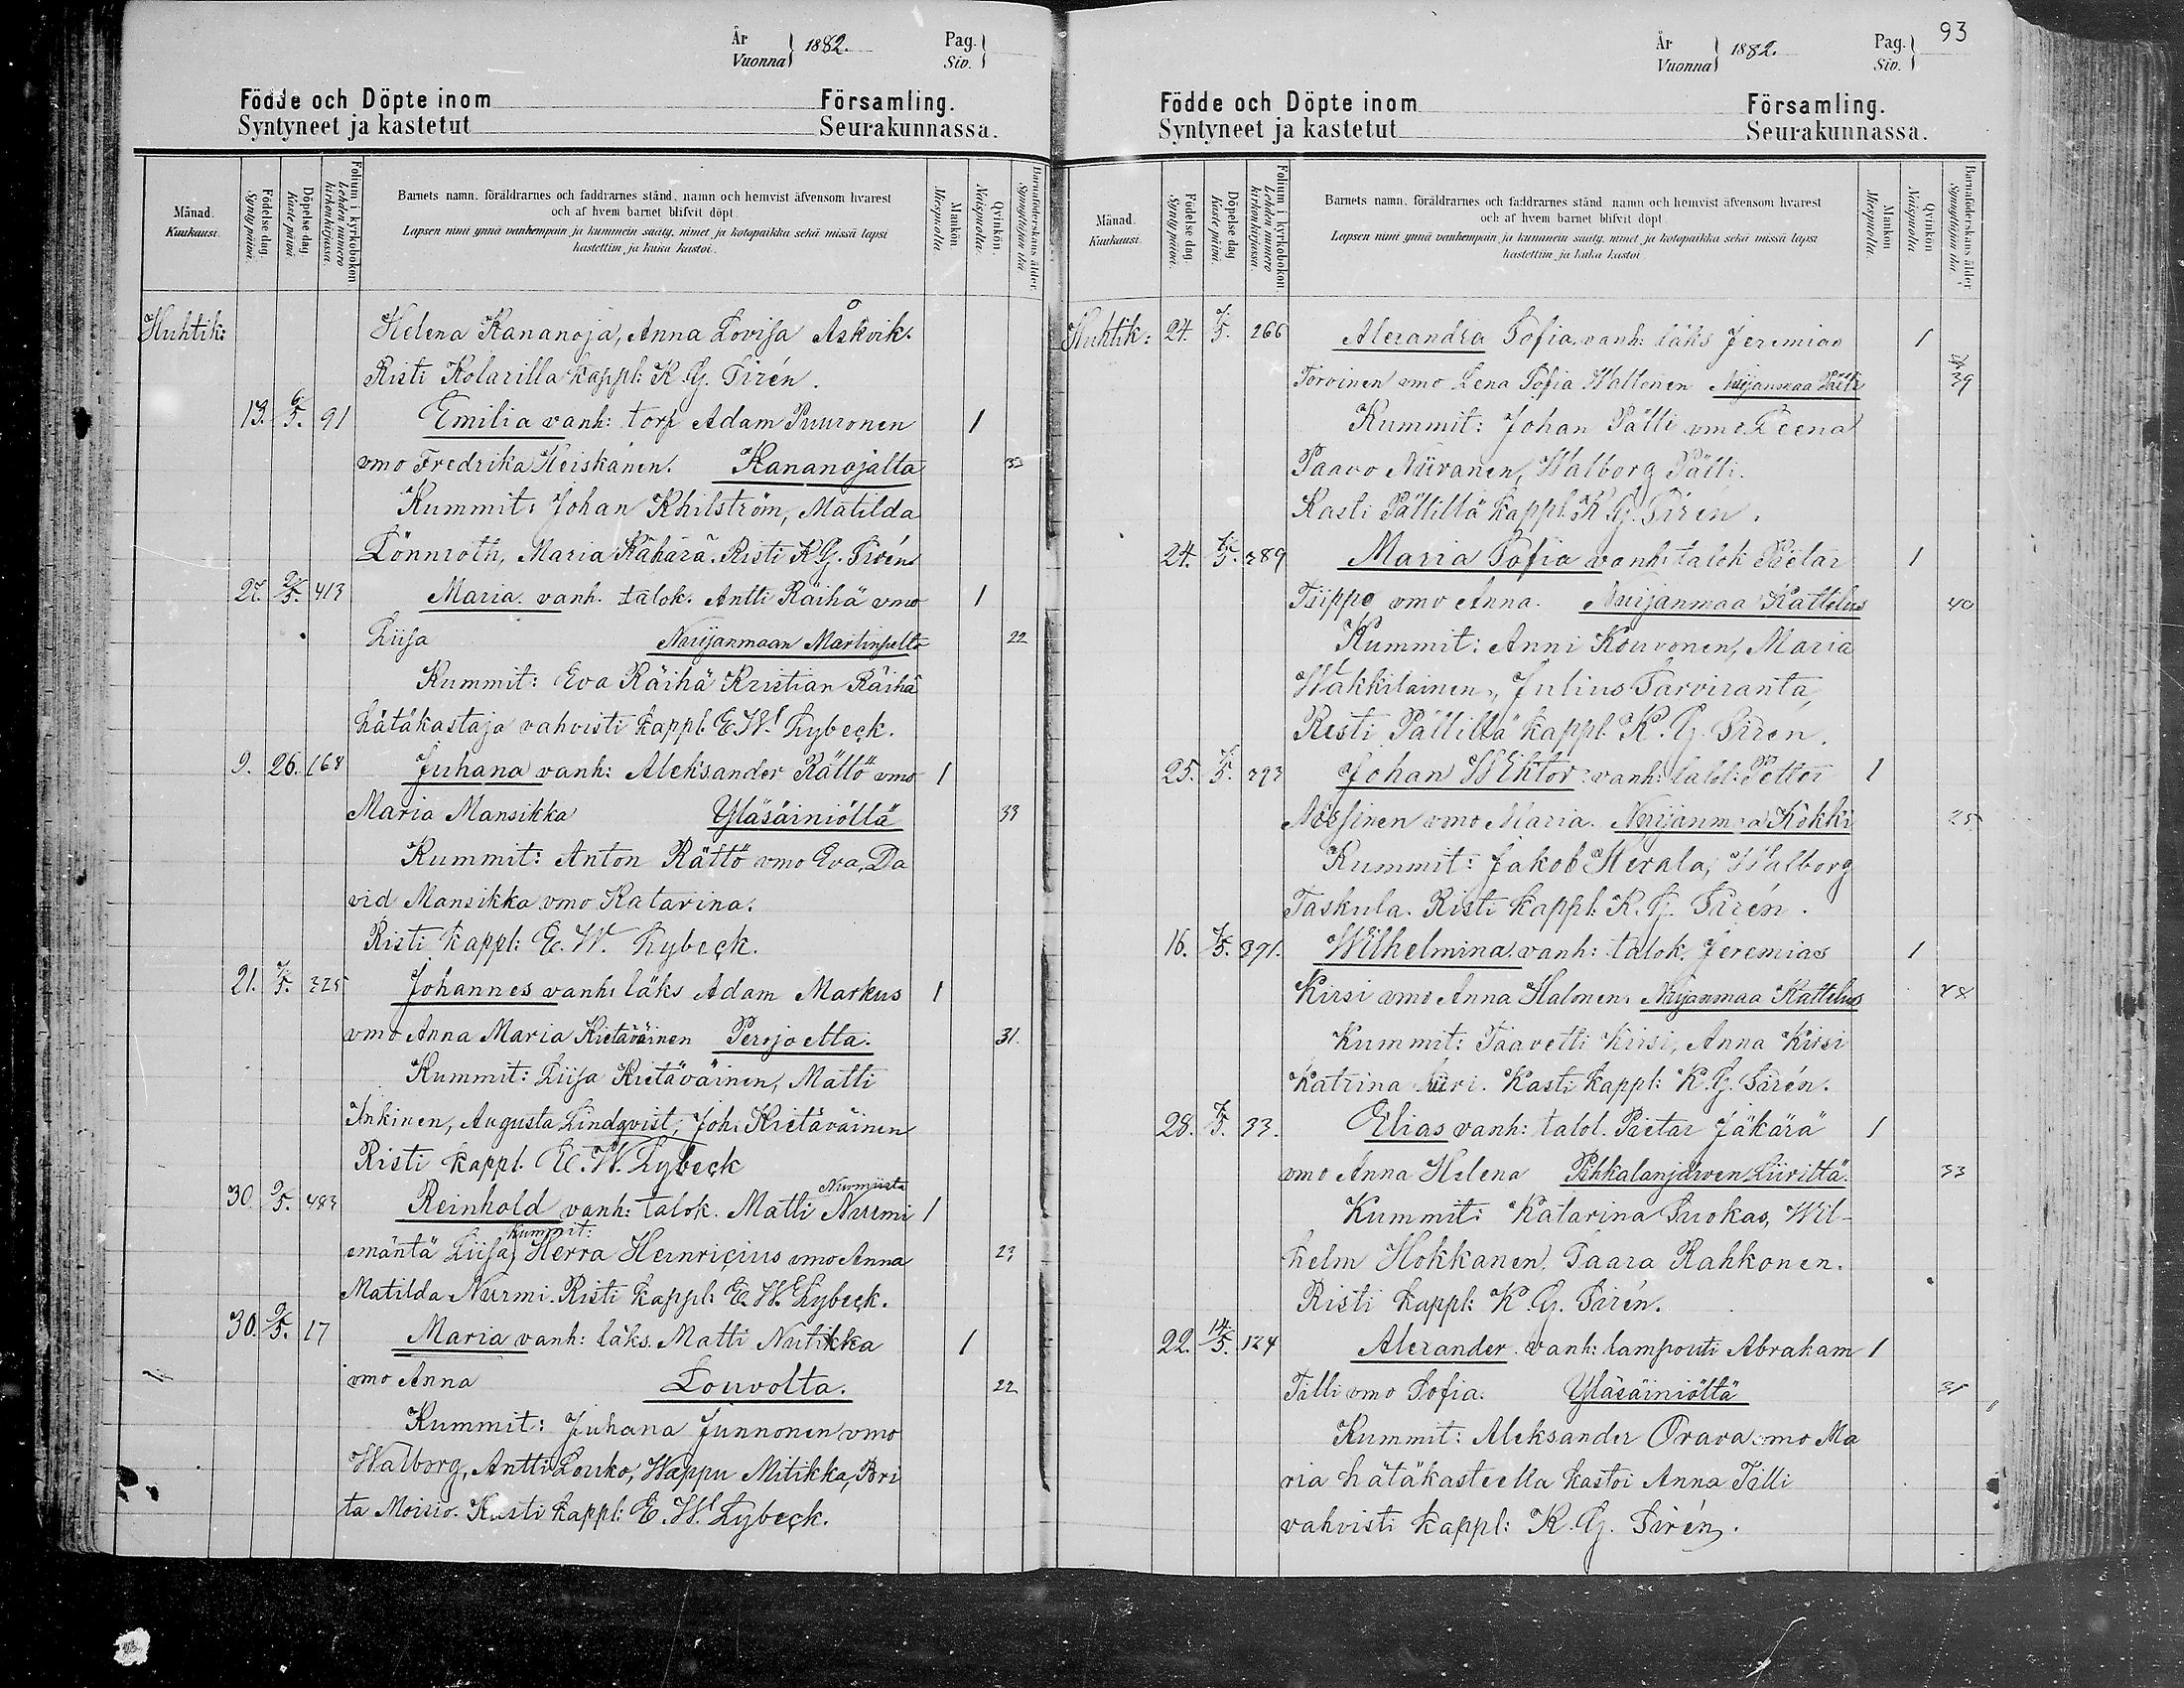 År
Vuonna
1882.
Pag.
Siv.
Födde och Döpte inom Församling.
Syntyneet ja kastetut Seurakunnassa.
Månad.
Kuukausi.
Födelse dag.
Syntypäivä.
Döpelse dag.
Kastepäivä.
Folium i kyrkoboken
Lehden numero kirkonkirjassa.
Barnets namn, föräldrarnes och faddrarnes stånd, namn och hemvist äfvensom hvarest
och af hvem barnet blifvit döpt.
Lapsen nimi ynnä vanhempain ja kummein sääty, nimet ja kotopaikka sekä missä lapsi
kastettiin ja kuka kastoi.
Mankön.
Miespuolia.
Qvinkön.
Naispuolia.
Barnaföderskans ålder.
Synnyttäjän ikä.
Huhtik: Helena Kananoja, Anna Lovisa Åskvik.
Risti Kolarilla kappl: K. G. Sirén.
13. 6/5. 91 Emilia vanh: torp Adam Puuronen 1
vmo Fredrika Heiskanen. Kananojalta 33
Kummit: Johan Khilström, Matilda
Lönnroth, Maria Kähärä. Risti K.G. Sirén
27. 413 Maria vanh. talok. Antti Räihä vmo 1
Liisa Nuijanmaan Martinpelto 22
Kummit: Eva Räihä Kristian Räihä
hätäkastaja vahvisti kappl. E. W. Lybeck.
9. 26. 168 Juhana vanh: Aleksander Rättö vmo 1
Maria Mansikka Yläsäiniöltä 33
Kummit: Anton Rättö vmo Eva, Da
vid Mansikka vmo Katarina.
Risti kappl: E. W. Lybeck.
21. 7/5. 325 Johannes vanh: läks Adam Markus 1
vmo Anna Maria Kietäväinen Perojoelta. 31.
Kummit: Liisa Kietäväinen, Matti
Inkinen, Augusta Lindqvist, Joh: Kietäväinen
Risti kappl. E. W. Lybeck
Nurmista
30. 9/5. 483 Reinhold vanh: talok. Matti Nurmi 1
Kummit:
emäntä Liisa, Herra Heinricius vmo Anna 23
Matilda Nurmi. Risti kappl: E. W. Lybeck.
30. 9/5. 17 Maria vanh: läks. Matti Nutikka 1
vmo Anna Louvolta. 22
Kummit: Juhana Junnonen vmo
Walborg, Antti Louko, Wappu Mitikka, Bri
ta Moisio. Kasti kappl: E. W. Lybeck.
93
År
Vuonna
1882.
Pag.
Siv.
Födde och Döpte inom Församling.
Syntyneet ja kastetut Seurakunnassa.
Månad.
Kuukausi.
Födelse dag.
Syntypäivä.
Döpelse dag.
Kaste päivä.
Folium i kyrkoboken.
Lehden numero kirkonkirjassa.
Barnets namn, föräldrarnes och faddrarnes stånd namn och hemvist äfvensom hvarest
och af hvem barnet blifvit döpt.
Lapsen nimi ynnä vanhempain ja kummein sääty, nimet ja kotopaikka sekä missä lapsi
kastettiin ja kuka kastoi
Mankön
Miespuolia.
Qvinkön
Naispuolia.
Barnaföderskans ålder
Synnyttäjän ikä.
Huhtik: 24. 7/5. 266 Alexandra Sofia vanh: läks Jeremias 1
Torvinen vmo Lena Sofia Waltonen Nuijanmaa Pälli 39
Kummit: Johan Pälli vmo Leena
Paavo Niiranen, Walborg Pälli.
Kasti Pällillä kappl: K. G. Sirén.
24. 7/5. 389 Maria Sofia vanh: talok Pietar 1
Tiippo vmo Anna. Nuijanmaa Kattelus 40
Kummit: Anni Kouvonen, Maria
Wakkilainen, Julius Tarviranta,
Risti Pällillä kappl. K. G. Sirén.
25. 7/5. 393 Johan Wiktor vanh: talol: Petter 1
vmo Maria. Nuijanmaa Kokki 25
Kummit: Jakob Herala, Walborg
Taskula. Risti kappl: K. G. Sirén.
16. 7/5. 391. Wilhelmina vanh: talok. Jeremias 1
Kirsi vmo Anna Halonen. Nuijanmaa Kattelus 28
Kummit: Taavetti Kirsi, Anna Kirsi
Katrina Kasti kappl: K. G. Sirén.
28. 7/5. 33. Elias vanh: talol. Pietar Jäkärä 1
vmo Anna Helena Pihkalanjärven Liiviltä. 33
Kummit: Katarina Suokas, Wil-
helm Hokkanen, Saara Rahkonen.
Risti kappl: K. G. Sirén.
22. 14/5. 124 Alexander vanh: lampouti Abraham 1
Tälli vmo Sofia. Yläsäiniöltä 31
Kummit: Aleksander Orava vmo Ma
ria hätäkasteella kastoi Anna Tälli
vahvisti kappl: K. G. Sirén.